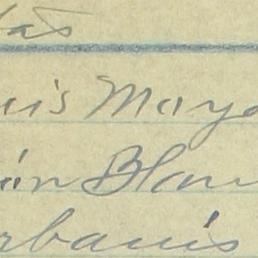 tas
uis Mayo
ián Blan
rbanis